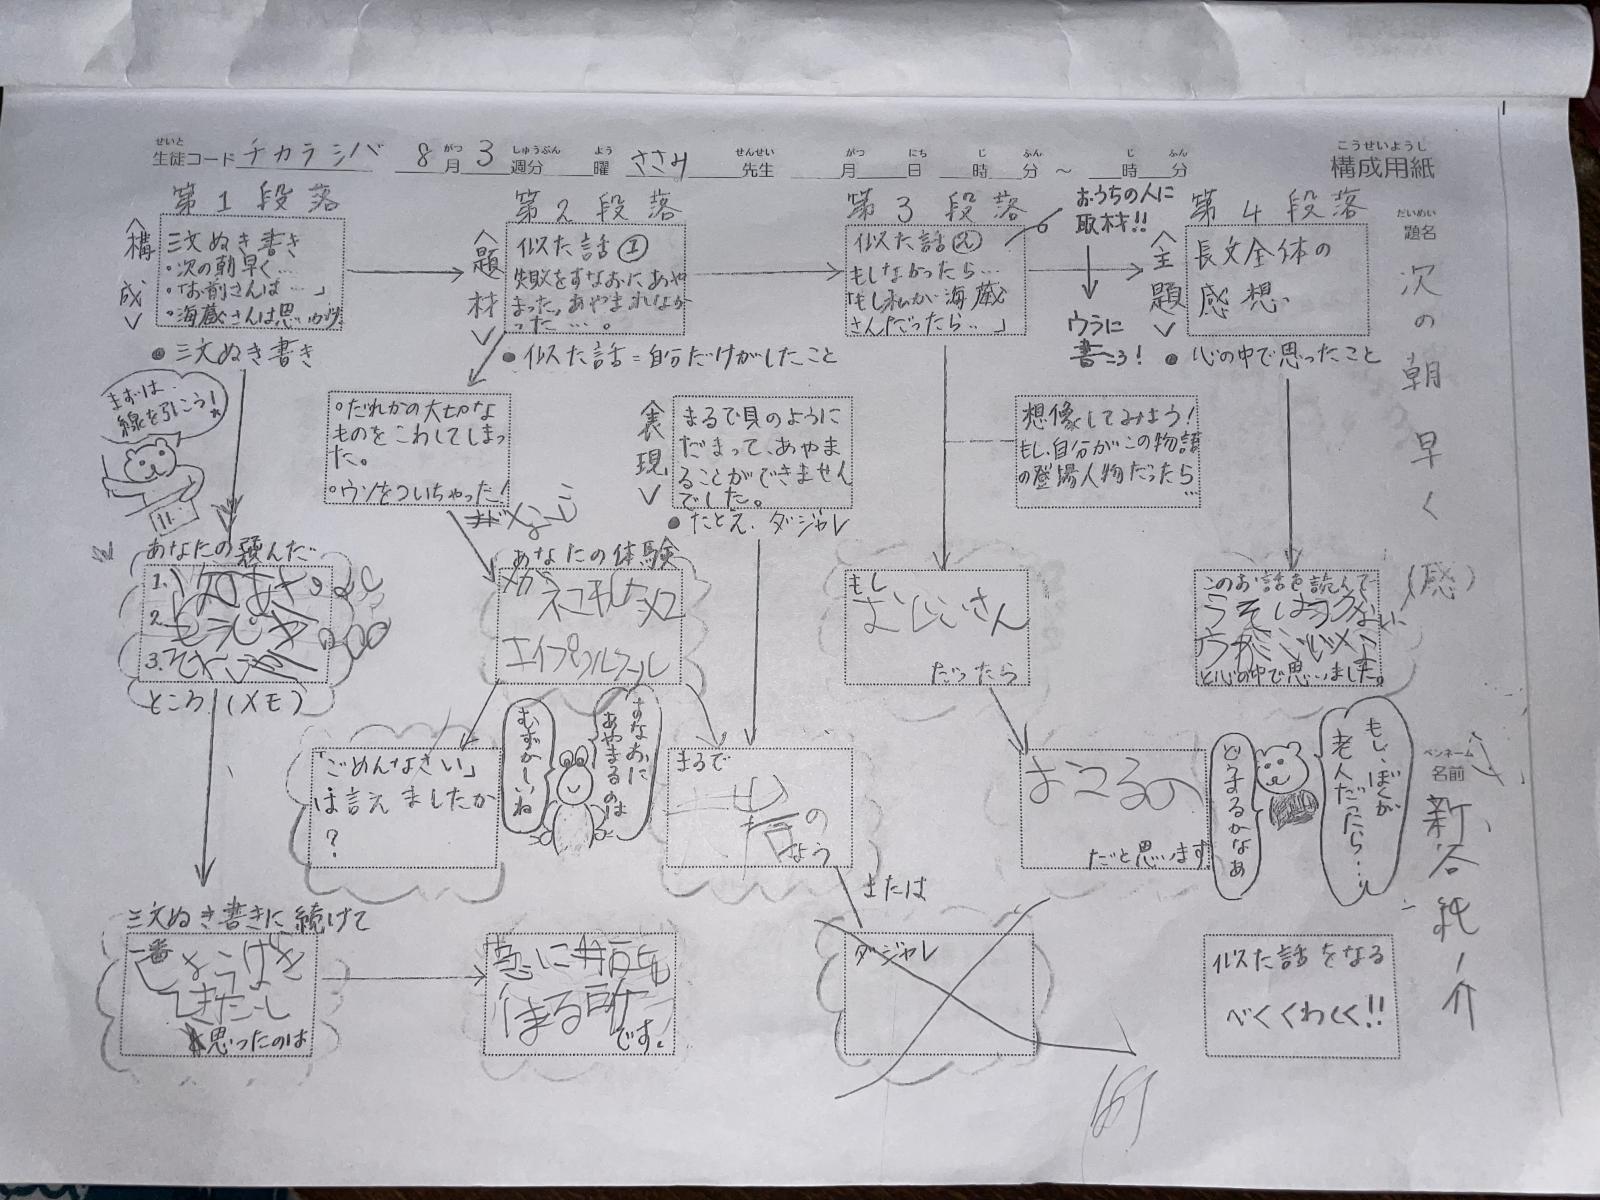 こうせいようし
構成用紙
せいと がつ しゅうぶん よう せんせい がつ にち じ ふん じ ふん
生徒コード チカラシバ 8月3週分 曜 ささみ 先生 月 日 時 分 ～ 時 分
だいめい
題名
次の朝早く (感)
ペンネーム
名前
第1段落
〈構成〉
三文ぬき書き
・次の朝早く…
・「お前さんは…」
・海蔵さんは思いがけ
●三文ぬき書き
まずは、
線を引こう!
あなたの選んだ
1.
2.
3.
ところ(メモ)
三文ぬき書きに続けて
一番
しょうげき
てきだし
思ったのは
第2段落
〈題材〉
似た話①
失敗をすなおにあや
まった。あやまれなか
った…。
●似た話=自分だけがしたこと
○だれかの大切な
ものをこわしてしまっ
た。
○ウソをついちゃった!
あなたの体験
エイプリルフール
「ごめんなさい」
は言えましたか
?
すなおに
あやまるのは
むずかしいね
です。
〈表現〉
まるで貝のように
だまって、あやま
ることができません
でした。
●たとえ、ダジャレ
まるで
岩の
よう
または
ダジャレ
第3段落
似た話②
もしなかったら…
「もし私が海蔵
さんだったら…」
おうちの人に
取材!!
ウラに
書こう!
想像してみよう!
もし、自分がこの物語
の登場人物だったら
…
もし
おじいさん
だったら
おこるの
だと思います
第4段落
〈主題〉
長文全体の
感想
●心の中で思ったこと
このお話を読んで
と心の中で思いました。
もし、ぼくが
老人だったら…
どうするかなあ
似た話をなる
べくくわしく!!